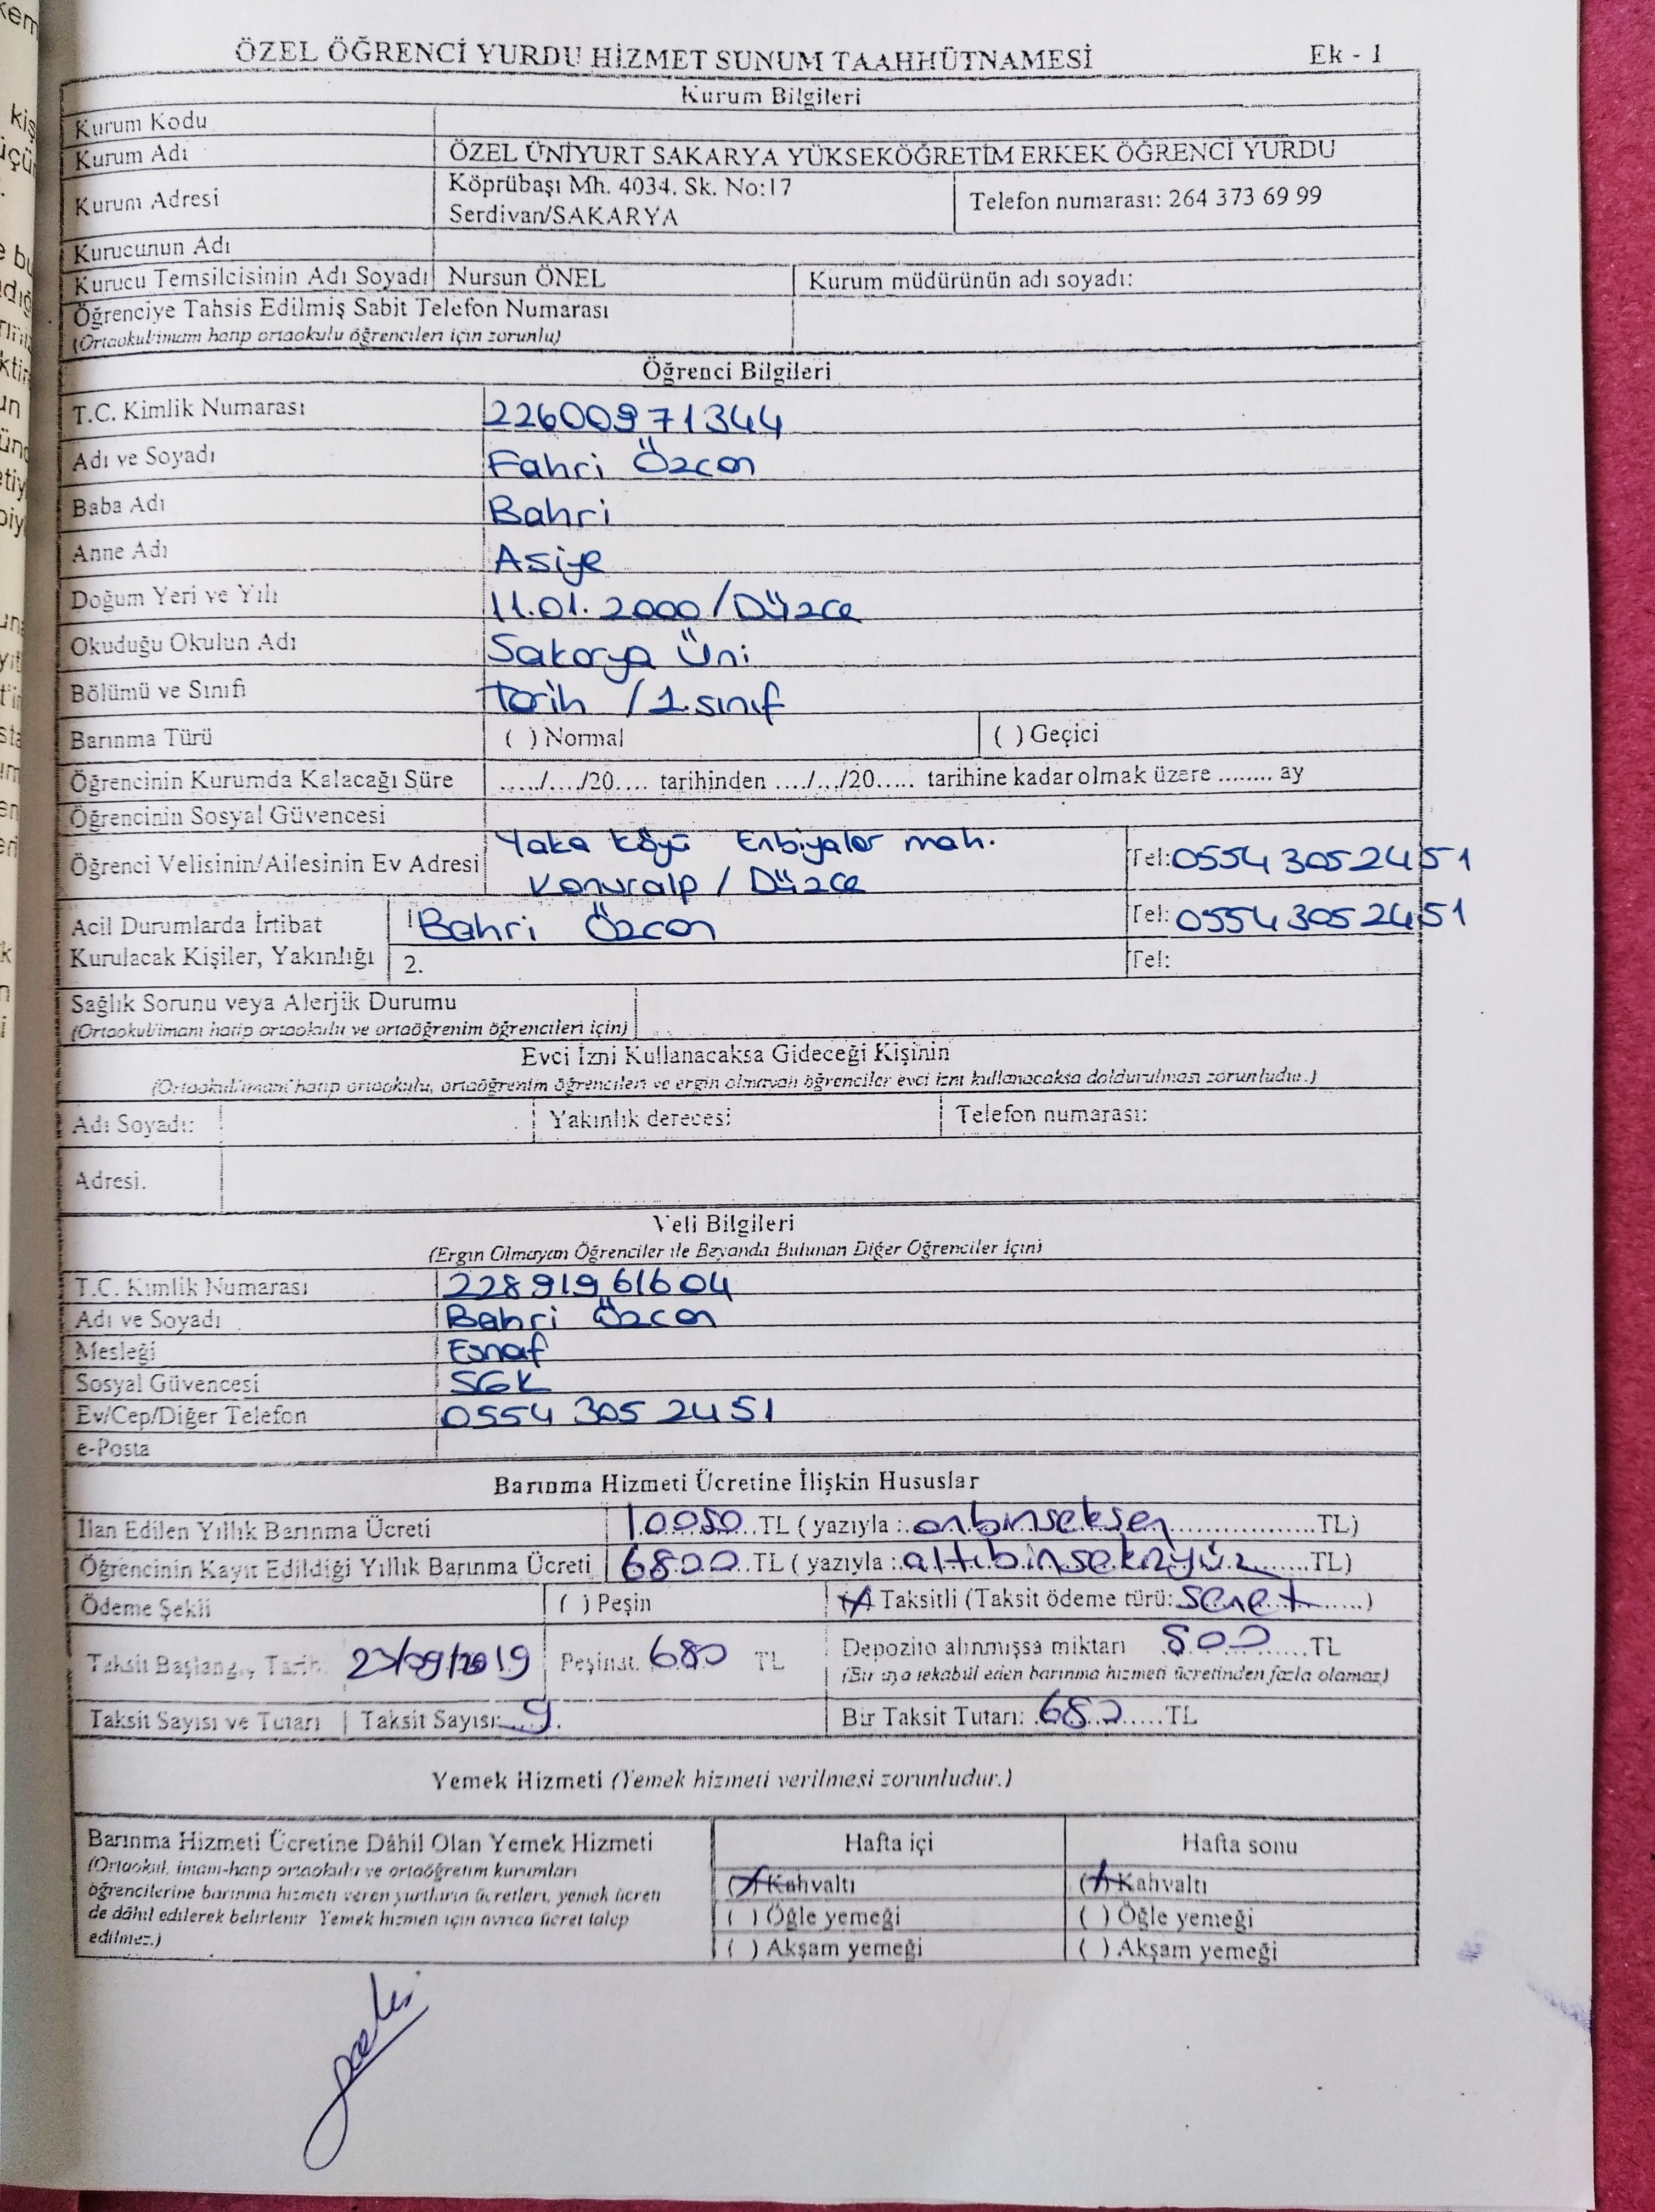 ÖZEL ÖĞRENCİ YURDU HİZMET SUNUM TAAHHÜTNAMESİ Ek - 1
Kurum Bilgileri
Kurum Kodu
Kurum Adı ÖZEL ÜNİYURT SAKARYA YÜKSEKÖĞRETİM ERKEK ÖĞRENCİ YURDU
Kurum Adresi Köprübaşı Mh. 4034. Sk. No:17
Serdivan/SAKARYA Telefon numarası: 264 373 69 99
Kurucunun Adı
Kurucu Temsilcisinin Adı Soyadı Nursun ÖNEL Kurum müdürünün adı soyadı:
Öğrenciye Tahsis Edilmiş Sabit Telefon Numarası
(Ortaokul/imam hatip ortaokulu öğrencileri için zorunlu)
Öğrenci Bilgileri
T.C. Kimlik Numarası 22600971344
Adı ve Soyadı Fahri Özcan
Baba Adı Bahri
Anne Adı Asiye
Doğum Yeri ve Yılı 11.01.2000/Düzce
Okuduğu Okulun Adı Sakarya Üni
Bölümü ve Sınıfı tarih /1.sınıf
Barınma Türü ( ) Normal ( ) Geçici
Öğrencinin Kurumda Kalacağı Süre ...../..../20.... tarihinden ..../.../20..... tarihine kadar olmak üzere ........ ay
Öğrencinin Sosyal Güvencesi
Öğrenci Velisinin/Ailesinin Ev Adresi Yaka köyü Enbiyalar mah.
Konuralp / Düzce Tel: 0554 305 24 51
Acil Durumlarda İrtibat Kurulacak Kişiler, Yakınlığı 1. Bahri Özcan Tel: 0554 305 24 51
2. Tel:
Sağlık Sorunu veya Alerjik Durumu
(Ortaokul/imam hatip ortaokulu ve ortaöğrenim öğrencileri için)
Evci İzni Kullanacaksa Gideceği Kişinin
(Ortaokul/imam hatip ortaokulu, ortaöğrenim öğrencileri ve ergin olmayan öğrenciler evci izni kullanacaksa doldurulması zorunludur.)
Adı Soyadı: Yakınlık derecesi: Telefon numarası:
Adresi.
Veli Bilgileri
(Ergin Olmayan Öğrenciler ile Beyanda Bulunan Diğer Öğrenciler İçin)
T.C. Kimlik Numarası 22891961604
Adı ve Soyadı Bahri Özcan
Mesleği Esnaf
Sosyal Güvencesi SGK
Ev/Cep/Diğer Telefon 0554 305 24 51
e-Posta
Barınma Hizmeti Ücretine İlişkin Hususlar
İlan Edilen Yıllık Barınma Ücreti 10080 TL ( yazıyla : onbinseksen TL)
Öğrencinin Kayıt Edildiği Yıllık Barınma Ücreti 6800 TL ( yazıyla : altıbinsekizyüz TL)
Ödeme Şekli ( ) Peşin (X) Taksitli (Taksit ödeme türü: senet )
Taksit Başlangıç Tarihi Peşinat. 680 TL Depozito alınmışsa miktarı 500 TL
(Bir aya tekabül eden barınma hizmeti ücretinden fazla olamaz)
Taksit Sayısı ve Tutarı Taksit Sayısı: 9 Bir Taksit Tutarı: 680 TL
Yemek Hizmeti (Yemek hizmeti verilmesi zorunludur.)
Barınma Hizmeti Ücretine Dâhil Olan Yemek Hizmeti Hafta içi Hafta sonu
(Ortaokul, imam-hatip ortaokulu ve ortaöğretim kurumları
öğrencilerine barınma hizmeti veren yurtların ücretleri, yemek ücreti
de dâhil edilerek belirlenir Yemek hizmeti için ayrıca ücret talep
edilmez.)
(X) Kahvaltı (X) Kahvaltı
( ) Öğle yemeği ( ) Öğle yemeği
( ) Akşam yemeği ( ) Akşam yemeği